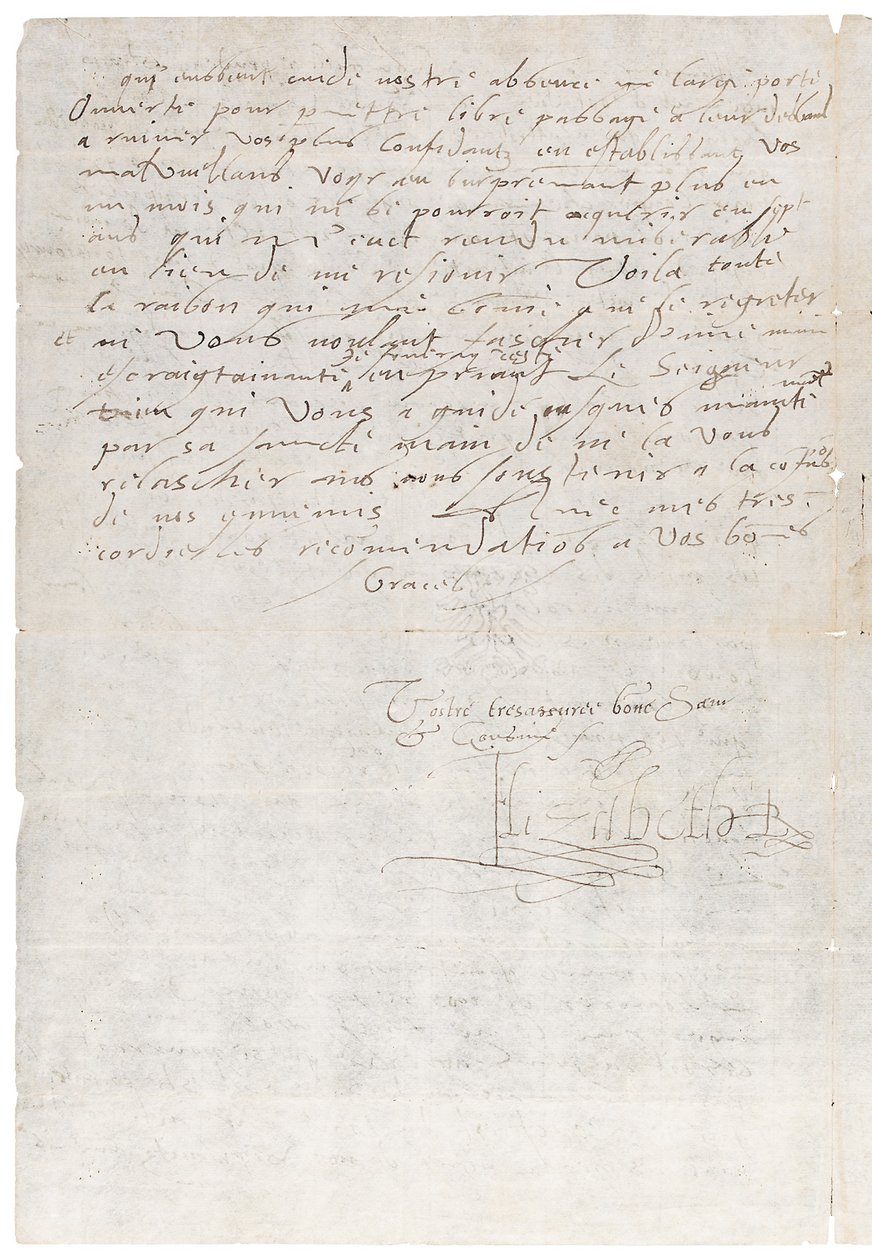 qui eussent cuidé vostre absence une large porte
Ouverte pour permettre libre passage a leur desseins
a ruiner vos plus Confidantz en establissant Vos
malvuellans Voyr en surprenant plus en
un mois qui ne se pourroit aquerir en sept
ans qui m'eust rendu miserable
en lieu de me resiouir Voila toute
la raison qui me a ne le regreter
et ne Vous voulant fascher d'une main
escraigtainante Je finiray ceste en priant Le Seigneur
Dieu qui Vous a guidé jusques maintenant
par sa saincte main de ne la Vous
relascher ains vous soustenir a la
de vos ennemis Avec mes tres
cordielles recomendatiōs a Vos bōnes
Graces
Vostre tresasseuree bōne Sœur
& Cousine
Elizabeth R